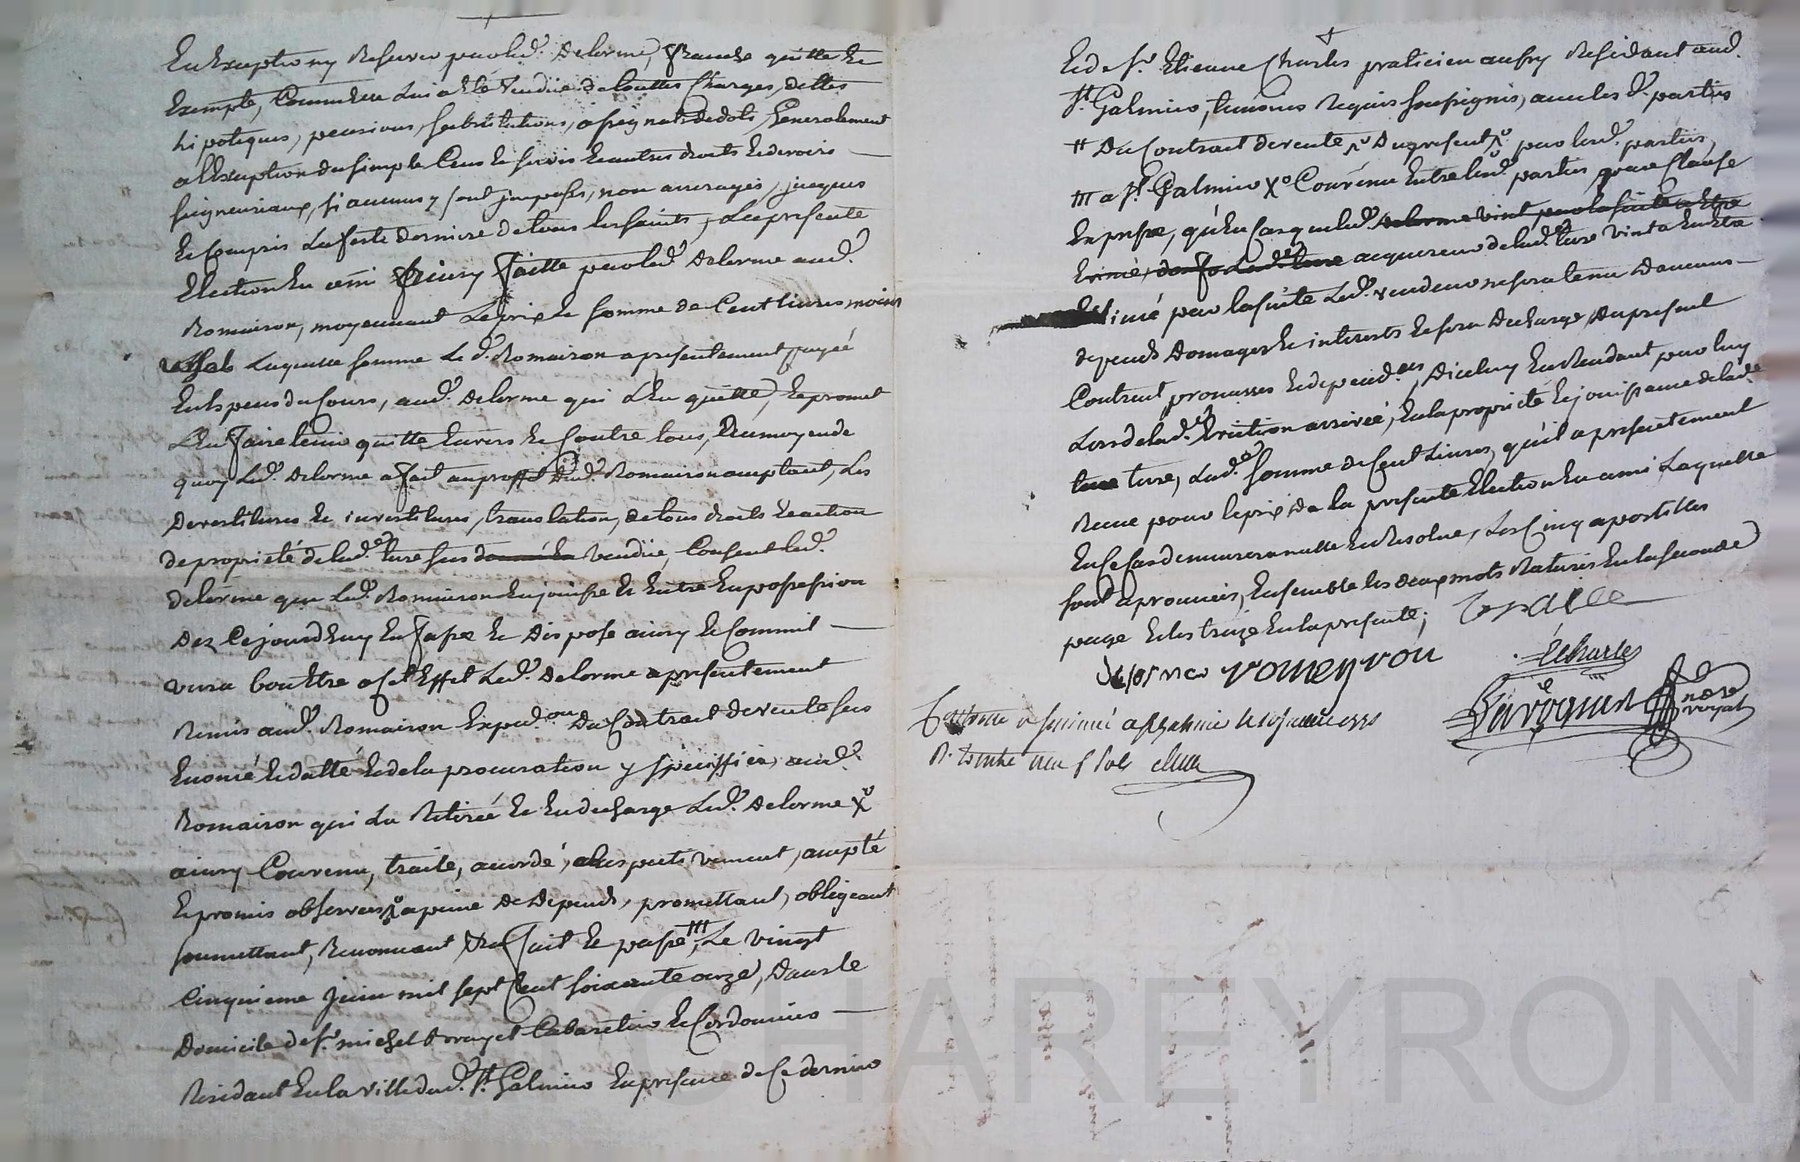 Exception Reserves par led. Delorme, franche quitte et
Exempte, Comme elle lui a été Vendue de touttes Charges, dettes
hipoteques, pensions, substitutions, assignats de dots, Generalement
a l'Exception du simple Cens et servis et autres droits et devoirs
seigneuriaux, si aucuns y sont imposés, non arreragés, jusques
et Compris La feste derniere de tous les saints, La presente
Election En ami Ainsy faitte par led. Delorme aud.
Romairon, moyennant Le prix et somme de Cent livres
Laquelle somme Le d. Romairon a presentement payée
En Especes du Cours, aud. Delorme qui L'En quitte, et promet
L'En faire tenir quitte Envers et Contre tous, Au moyen de
quoy Led. Delorme a fait au proffit Dud. Romairon acceptant, Les
Devestitures et investitures, translation, de tous droits et action
de proprieté de lad. terre sus Vendüe, Consent led.
Delorme que Led. Romairon En jouisse et Entre En possession
Dez Cejourd'huy En fasse et Dispose ainsy et Comme il
verra bon Etre a Cet Effet Led. Delorme a presentement
Remis aud. Romairon Exped.on Du Contrat de vente sus
Enoncé et datté et de la procuration y speciffiée, aud.
Romairon qui La Retirée et En decharge Led. Delorme X
ainsy Convenu, traité, accordé, Respectivement, accepté
et promis observer a peine de Depends, promettant, obligeant
soumettant, Renonçant &a fait et passé III, Le vingt
Cinquieme juin mil sept Cent soixante onze, Dans le
Domicile de Sr. michel Cabaretier et Cordonnier
Residant En la ville dud. St. Galmier En presence de Ce dernier
Et de Sr. Etienne Charles praticien aussy Residant aud.
St. Galmier, temoins Requis soussignés, avec les d. parties
# Du Contrat de vente Du present par lesd. parties,
III a St. Galmier X Convenu Entre lesd. parties, par Clause
Expresse, qu'En Cas que led. Delorme vint par la suite a Etre
Evincé, acquereur de lad. terre vint a En Etre
Evincé par la suite Led. vendeur ne sera tenu D'aucuns
depends Domages et interests et sera Decharge, Du present
Contrat promesses et depend.ces, D'icelluy En Rendant par luy
Lors de lad. Eviction arrivée, En la proprieté et jouissance de lade
terre, Lad. somme de Cent Livres, qu'il a presentement
Receue pour le prix De la presente Election En ami, Laquelle
En Ce Cas demeurera nulle et Resolue, Les Cinq apostilles
sont aprouvées, Ensemble les deux mots Raturés En la seconde
page Et les treize En la presente;
romeyron
ECharles
nore royal